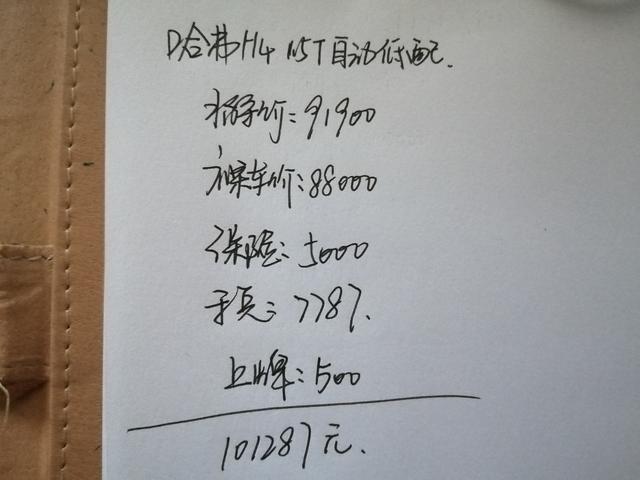 D哈弗H4 1.5T自动低配.
指导价:91900
裸车价:88000
保险:5000
:7787.
上牌:500
101287元.